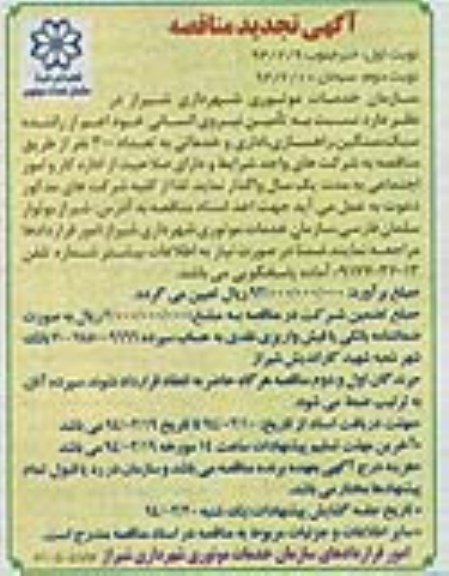 آگهی تجدید مناقصه
نوبت اول: خبر جنوب
نوبت دوم: سبحان
سازمان خدمات موتوری شهرداری شیراز در
نظر دارد نسبت به تأمین نیروی انسانی خود اعم از راننده
سبک، سنگین، راهسازی، اداری و خدماتی به تعداد ۳۰۰ نفر از طریق
مناقصه به شرکت های واجد شرایط و دارای صلاحیت از اداره کار و امور
اجتماعی به مدت یک سال واگذار نماید. لذا از کلیه شرکت های مذکور
دعوت به عمل می آید جهت اخذ اسناد مناقصه به آدرس: شیراز بولوار
سلمان فارسی سازمان خدمات موتوری شهرداری شیراز امور قراردادها
مراجعه نمایند ضمناً در صورت نیاز به اطلاعات بیشتر شماره تلفن
آماده پاسخگویی می باشد.
مبلغ برآورد: ریال تعیین می گردد.
مبلغ تضمین شرکت در مناقصه به مبلغ ریال به صورت
ضمانتنامه بانکی یا فیش واریزی نقدی به حساب سپرده بانک
شهر شعبه شهید کاراندیش شیراز
برندگان اول و دوم مناقصه هرگاه حاضر به انعقاد قرارداد نشوند سپرده آنان
به ترتیب ضبط می شود.
مهلت دریافت اسناد از تاریخ: ۹۴/۰۲/۱۰ تا تاریخ ۹۴/۰۲/۱۹ می باشد
آخرین مهلت تسلیم پیشنهادات ساعت ۱۴ مورخه ۹۴/۰۲/۱۹ می باشد
هزینه درج آگهی بعهده برنده مناقصه می باشد و سازمان در رد یا قبول تمام
پیشنهادها مختار می باشد.
تاریخ جلسه گشایش پیشنهادات: یک شنبه ۹۴/۰۲/۲۰
سایر اطلاعات و جزئیات مربوط به مناقصه در اسناد مناقصه مندرج است.
امور قراردادهای سازمان خدمات موتوری شهرداری شیراز